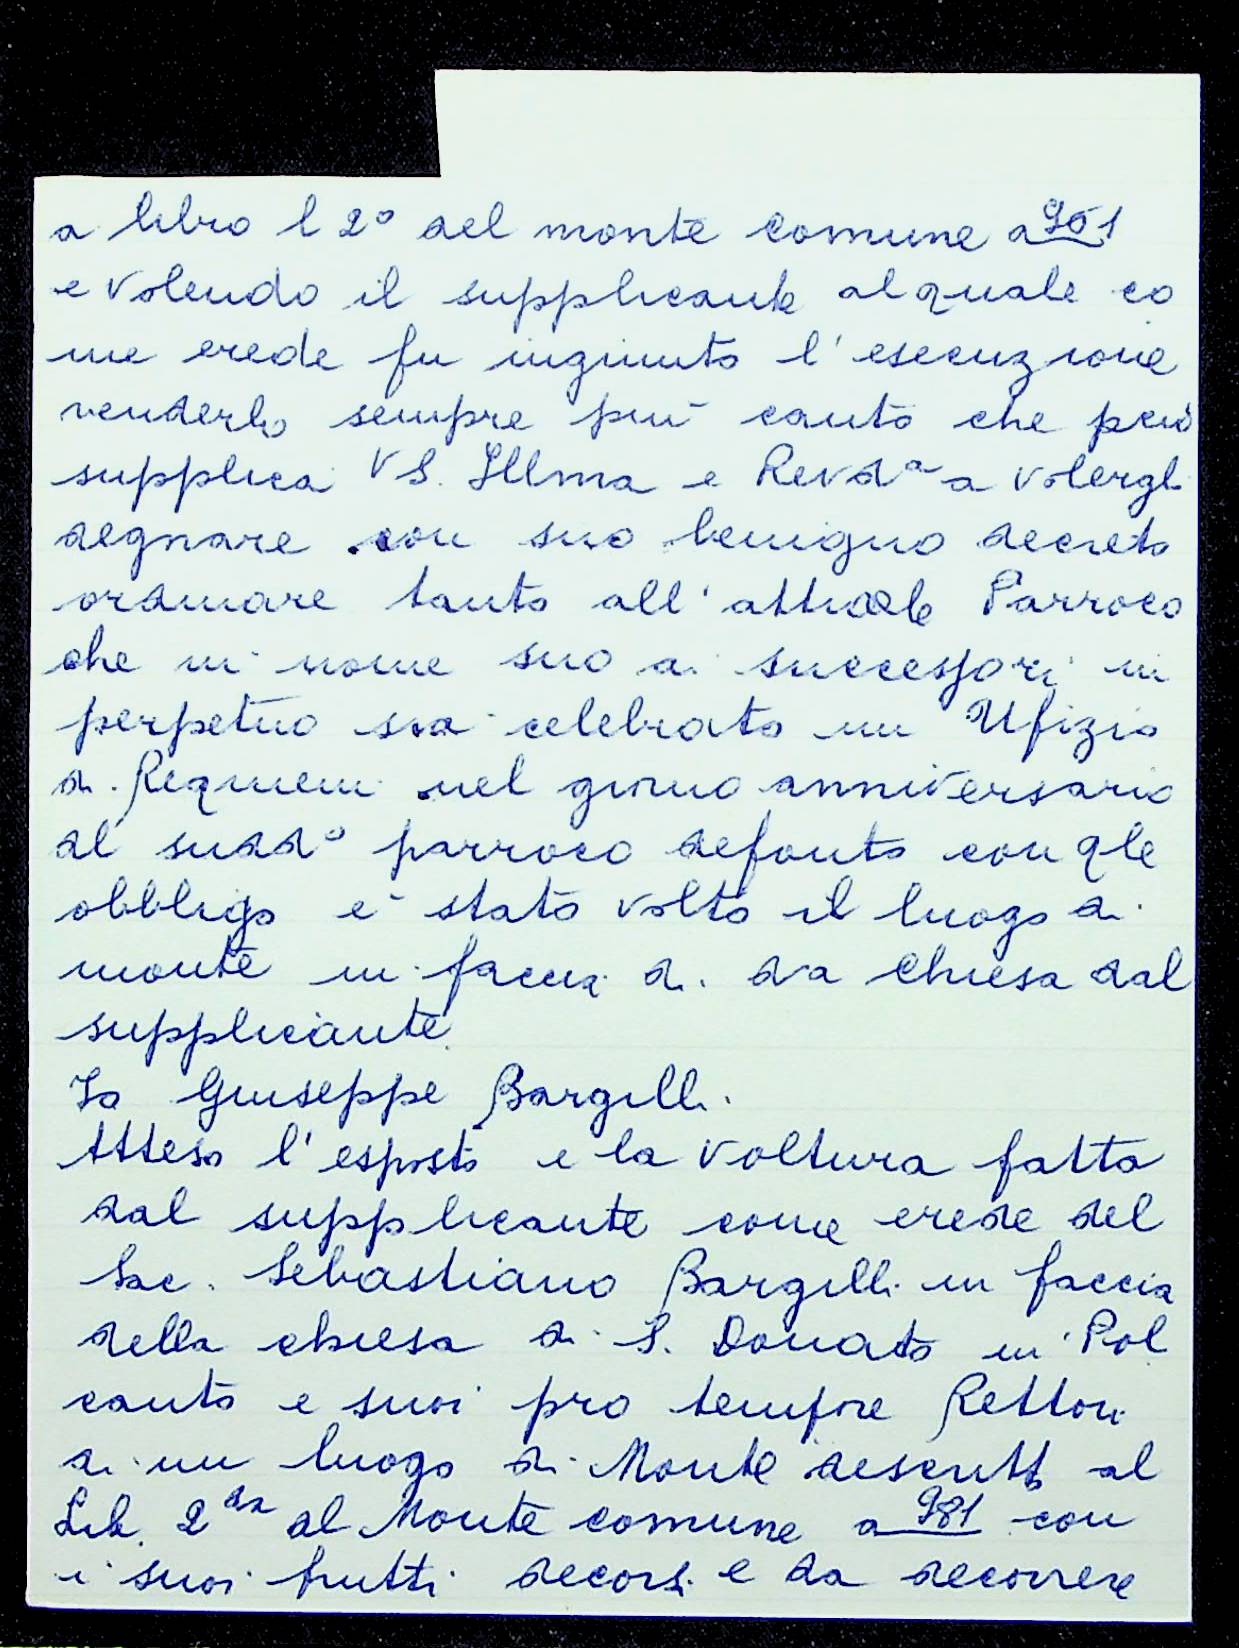 a libro l 2° del monte comune a 951
e volendo il supplicante al quale co
me erede fu ingiunto l'esecuzione
renderlo sempre più cauto che perciò
supplica VS. Illma e Revda a volergli
degnare con suo benigno decreto
ordinare tanto all'attuale Parroco
che in nome suo ai successori in
perpetuo sia celebrato un Ufizio
di Requiem nel giorno anniversario
al sudd° parroco defonto con qle
obbligo è stato volto il luogo di
monte in faccia di da Chiesa dal
supplicante
Io Giuseppe Bargilli.
Atteso l'esposto e la voltura fatta
dal supplicante come erede del
Sac. Sebastiano Bargilli in faccia
della chiesa di S. Donato in Pol
canto e suoi pro tempore Rettori
di un luogo di Monte descritto al
Lib. 2 al Monte comune a 981 con
i suoi frutti decorsi e da decorrere